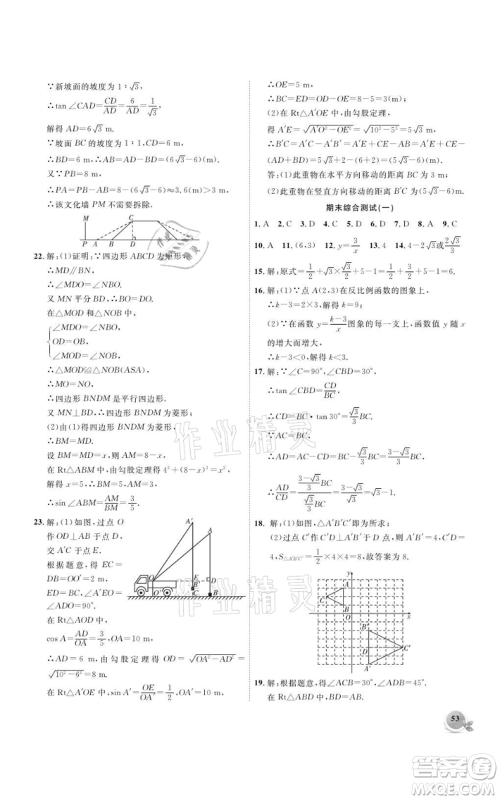 ∵新坡面的坡度为1∶√3,
∴tan∠CAD=CD/AD=6/AD=1/√3,
解得 AD=6√3 m.
∵坡面 BC 的坡度为1∶1,CD=6 m,
∴BD=6 m,∴AB=(6√3-6)m,
∴PA=PB-AB=8-(6√3-6)=14-6√3>3,
∴该文化墙 PM 不需要拆除.
M
C
P A B D
22. 解:(1)证明:∵四边形 ABCD 为矩形,
∴MD∥BN,
∴∠MDO=∠NBO.
又 MN 平分 BD,∴BO=DO.
在△MDO 与△NBO 中,
∠MDO=∠NBO,
OD=OB,
∠MOD=∠NOB,
∴△MDO≌△NBO(ASA),
∴MO=NO,
∴四边形 BNDM 为平行四边形.
又 MN⊥BD,∴四边形 BNDM 为菱形;
(2)由(1)的得四边形 BNDM 为菱形,
∴BM=MD.
设 BM=MD=x,则 AM=8-x.
在 Rt△ABM 中,由勾股定理得 4²+(8-x)²=x²,
解得 x=5,∴BM=5,AM=3,
∴sin∠ABM=AM/BM=3/5.
23. 解:(1)如图,过点 O
作 OD⊥AB 于点 D,
交 A′C 于点 E.
根据题意,得 EC=
DB=OO′=2 m,
ED=BC,∠A′ED=
∠ADO=90°.
在 Rt△AOD 中,
cosA=AD/OA=3/5,OA=10 m,
∴AD=6 m,由勾股定理得 OD=√(OA²-AD²)=
√(10²-6²)=8(m).
在 Rt△A′OE 中,sinA′=OE/OA′=1/2,OA′=10 m,
∴OE=5 m,
∴BC=ED=OD-OE=8-5=3(m);
(2)在 Rt△A′OE 中,由勾股定理,
得 A′E=√(A′O²-OE²)=√(10²-5²)=5√3(m).
∴B′C=A′C-A′B′=A′E+CE-AB=A′E+CE-
(AD+BD)=5√3+2-(6+2)=5√3-6(m).
答:(1)此重物在水平方向移动的距离 BC 是 3 m;
(2)此重物在竖直方向移动的距离 B′C 是(5√3-6)m.
期末综合测试(一)
1. A 2. C 3. D 4. D 5. A 6. C 7. D 8. C 9. B
10. A 11. (6,3) 12. y=6/x 13. 4 14. 2√3或2√3/3
15. 解:原式=1/2+√3×√3/2+5-1=1/2+3/2+5-1=6.
16. 解:(1)∵点 A(2,3)在反比例函数的图象上,
∴k-3=2×3=6,∴k=9;
(2)∵在函数 y=(k-3)/x 图象的每一支上,y 随 x
的增大而增大,
∴k-3<0,∴k<3.
17. 解:∵∠C=90°,∠A=30°,
∴tan∠CBD=CD/BC,
18. 解:(1)如图,△A′B′C′即为所求;
(2)过点 C′作 C′D⊥A′B′,由图可知,A′B′=4,C′D=
4,S△A′B′C′=1/2×4×4=8,故答案为 8.
19. 解:根据题意,得∠ACB=90°,∠CAD=30°.
在 Rt△ABD 中,∵∠ADB=90°,
作业精灵
53